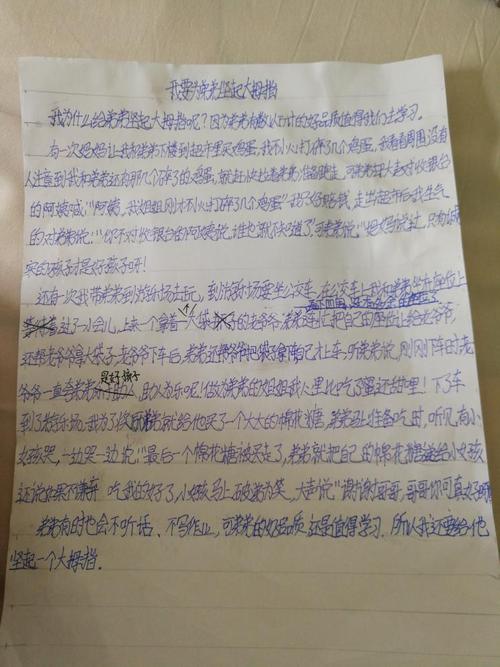 我要为弟弟竖起大拇指
我为什么给弟弟竖起大拇指呢?因为弟弟有数以计的好品质值得我们去学习。
有一次妈妈让我和弟弟下楼到超市里买鸡蛋,我不小心打碎了几个鸡蛋,我看看周围没有
人注意到我和弟弟还有那几个碎了的鸡蛋,就赶快拉着弟弟准备走,可弟弟大声对收银台
的阿姨喊:"阿姨,我姐姐刚才不小心打碎了几个鸡蛋"我只好赔钱,走出超市后我生气
的对弟弟说:"你不对收银台的阿姨说,谁也就不知道了,可弟弟说:"妈妈说过,只有诚
实的孩子才是好孩子呀!
还有一次我带弟弟到游乐场去玩,到游乐场要坐公交车,在公交车上我和弟弟坐在座位上
过了一小会儿,上来一个拿着一大袋的老爷爷,弟弟连忙把自己的座位让给老爷爷,
还帮老爷爷拿大袋子,老爷爷下车后,弟弟还帮爷爷把袋子拿下自己扛上车,弟弟说,刚刚下车时老
爷爷一直夸弟弟是好孩子,助人为乐呢!做为弟弟的姐姐我心里比吃了蜜还甜哩!下了车
到了游乐场,我为了奖励弟弟就给他买了一个大大的棉花糖,弟弟马上准备吃时,听见有小
女孩哭,一边哭一边说:"最后一个棉花糖被买走了,弟弟就把自己的棉花糖送给小女孩
还说如果不嫌弃 吃我的好了,小女孩马上破涕为笑,大声说"谢谢哥哥,哥哥你可真好啊
弟弟有时也会不听话、不写作业,可弟弟的好品质还是值得学习,所以我还要给他
竖起一个大拇指。